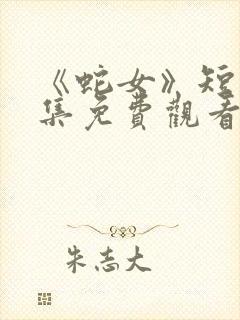 《蛇女》短
集免費觀看
朱志大